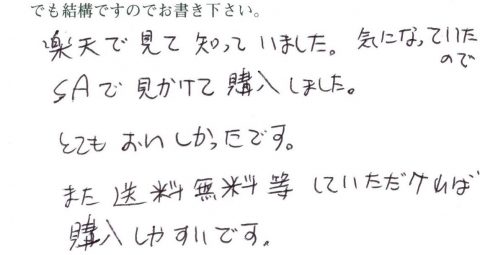 でも結構ですのでお書き下さい。
楽天で見て知っていました。気になっていた
ので
SAで見かけて購入しました。
とてもおいしかったです。
また送料無料等していただければ
購入しやすいです。